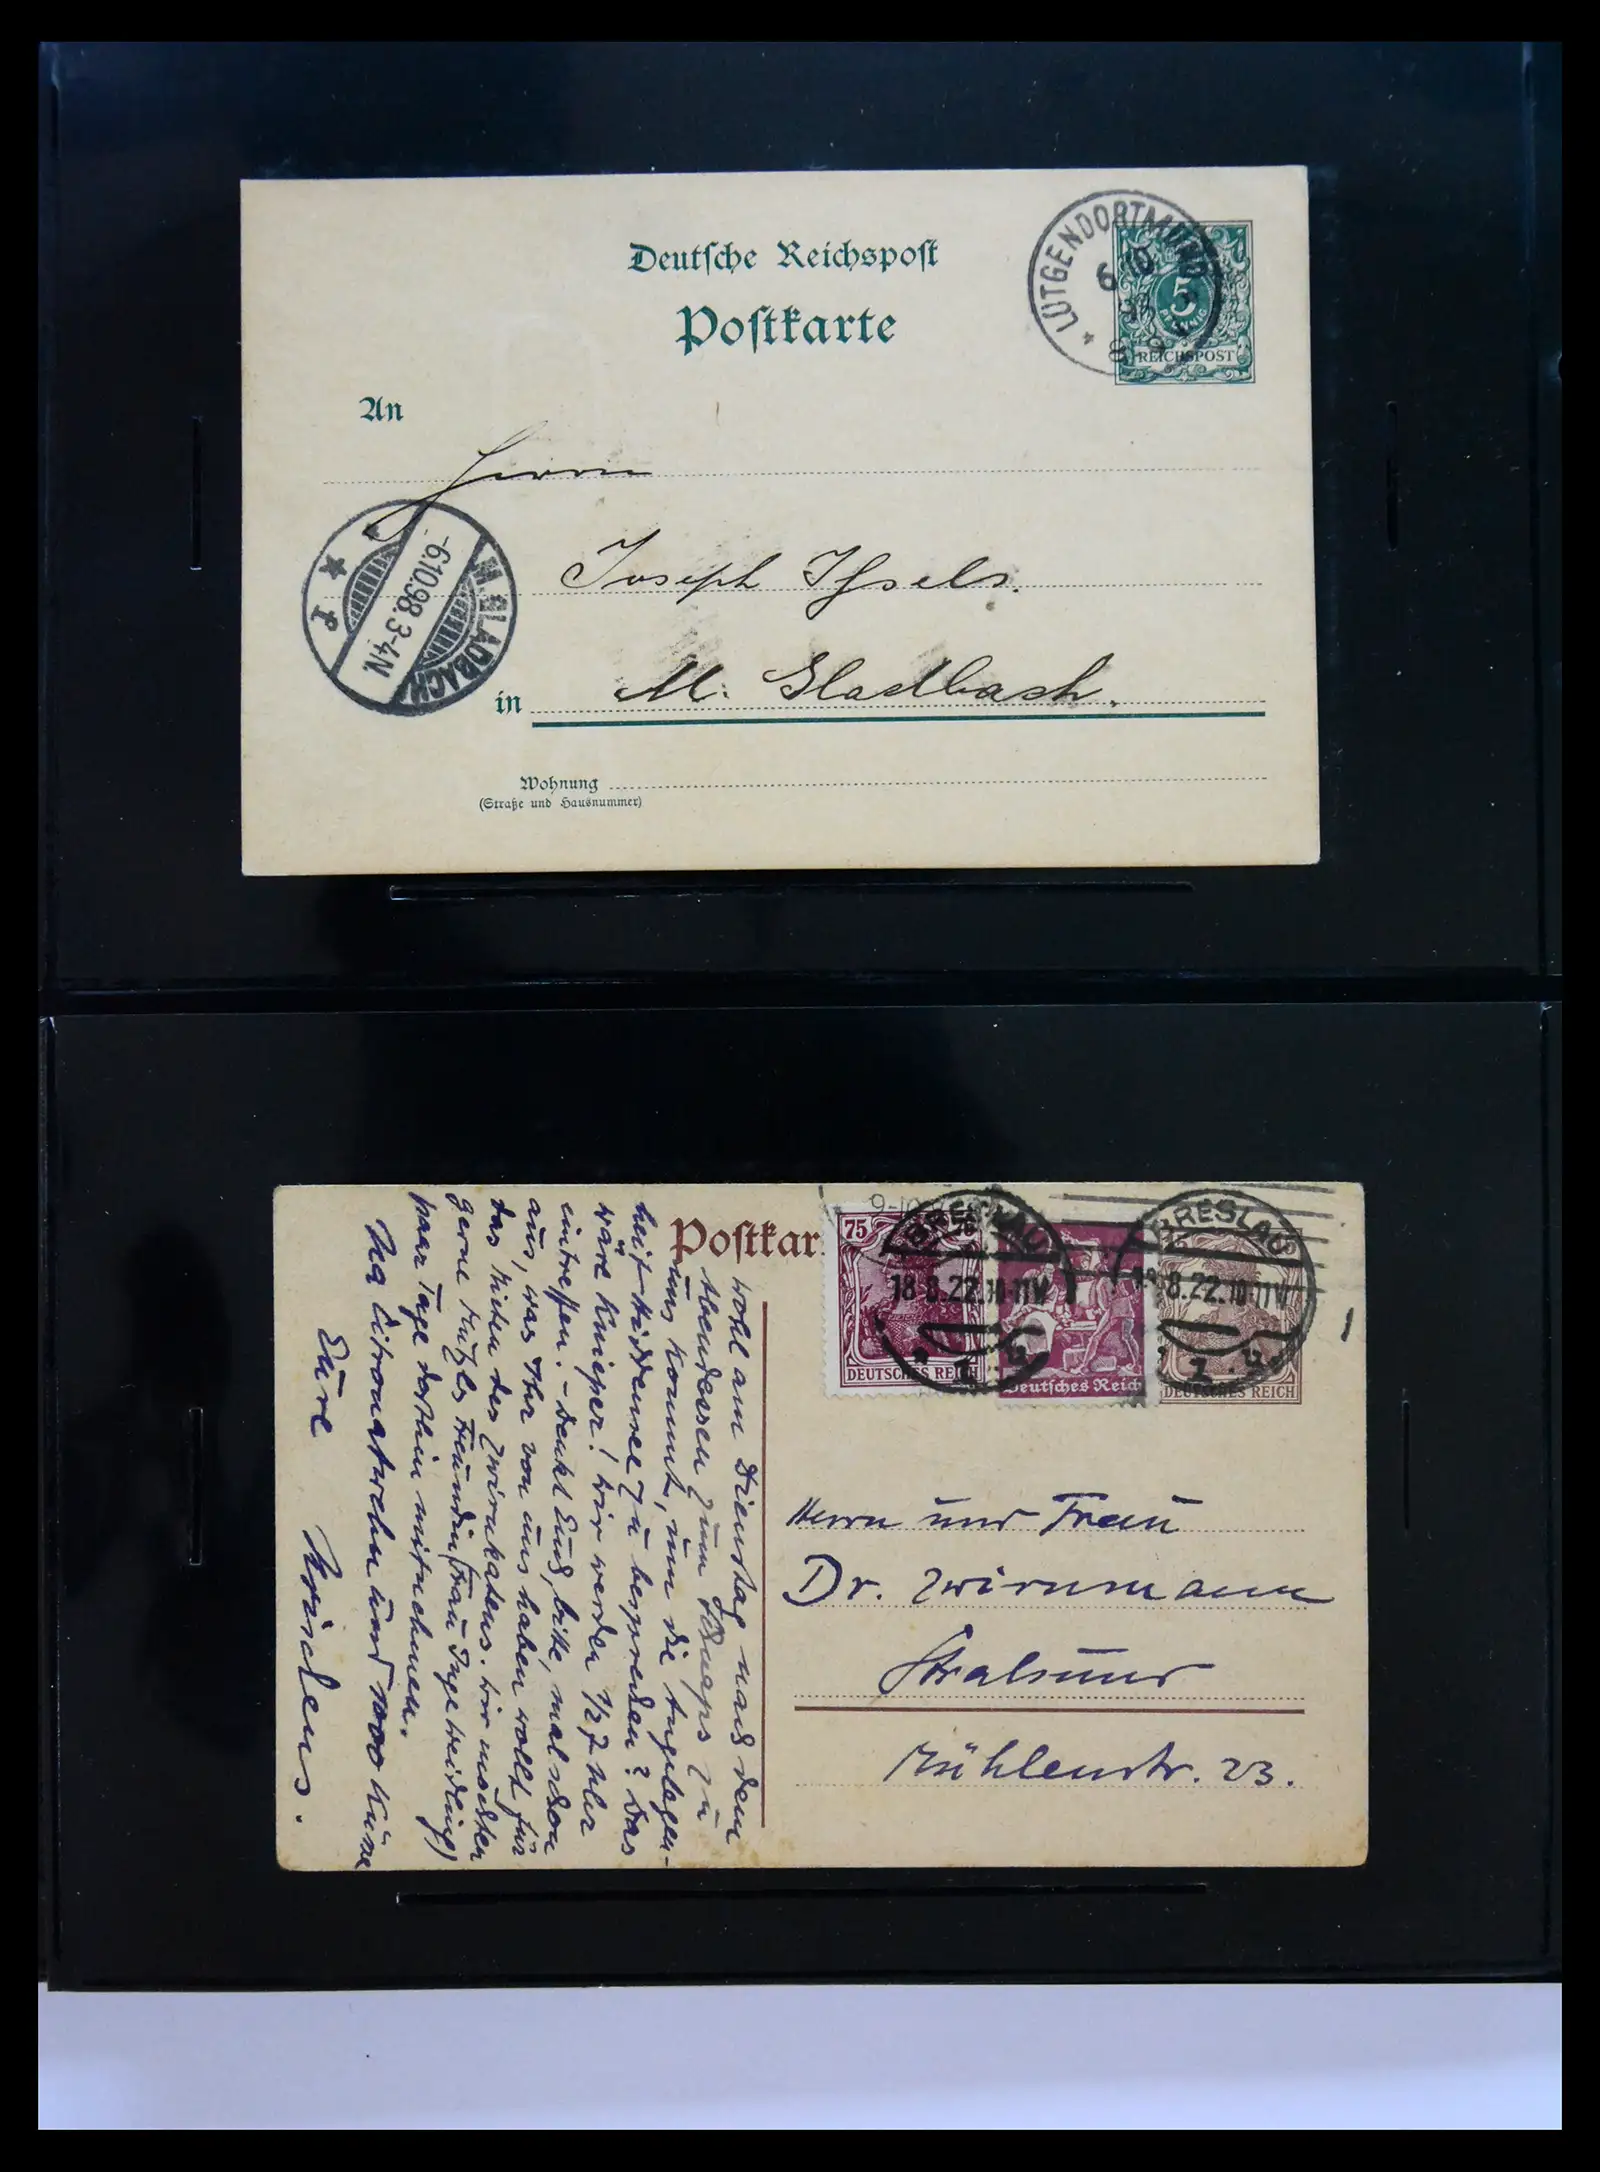 Deutsche Reichspost
Postkarte
LÜTGENDORTMUND
6 10
98
5
PFENNIG
REICHSPOST
An
Herrn
Joseph Ihsels.
M. GLADBACH
-6.10.98.3-4N.
in M. Gladbach.
Wohnung
(Straße und Hausnummer)
Postkar
75
75
DEUTSCHES REICH
Deutsches Reich
DEUTSCHES REICH
BRESLAU
18.8.22.10-11V
1
BRESLAU
18.8.22.10-11V
1
Herrn und Frau
Dr. Zwirnmann
Stralsund
Mühlenstr. 23.
wohl am Dienstag nach dem
Abendessen zum Schnaps zu
uns kommt, um die Angelegen-
heit Hiddensee zu besprechen? Das
wäre knieper! Wir werden 1/2 7 Uhr
eintreffen. – Denkt Euch, bitte, mal schon
aus, was Ihr von uns haben wollt für
das Hüten des Zwirnkatens. Wir möchten
gerne
paar Tage dorthin mitnehmen.
und 1000 Küsse
Eure